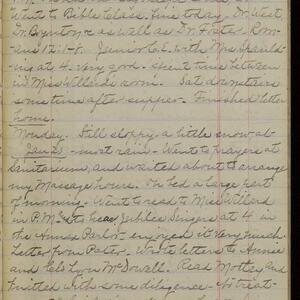 went to Bible Class. fine today. Dr. West,
Dr. Boynton & as well as Dr. Foster. Rom-
ans 12:1-8. Junior C.E. with Mrs Spauld-
ing at 4. very good. Spent time between
in Miss Willard's room. Sat downstairs
some time after supper. Finished letter
home.
Monday. Still sloppy, a little snow at-
most rain. Went to prayers at
Sanitarium, and waited about to arrange
my Massage hours. In bed a large part
of morning. Went to read to Miss Willard
in P.M. & to hear Jubilee Singers at 4 in
the Annex Parlor. enjoyed it very much.
Letter from Pater. Wrote letters to Annie
and McDowell. Read Motley and
knitted with some diligence. treat-